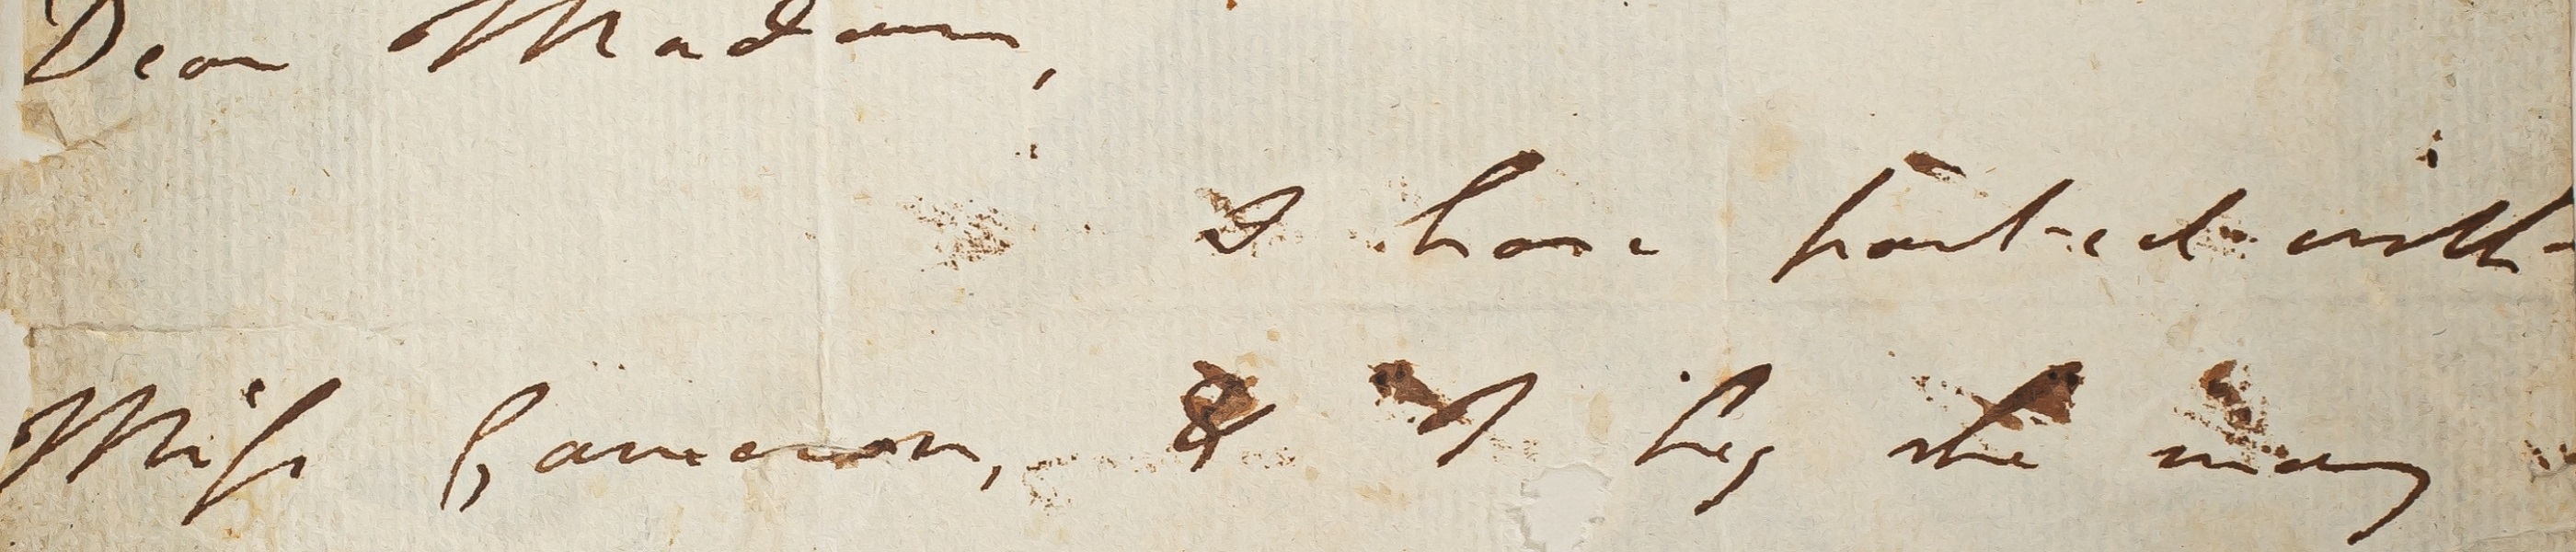 Dear Madam,
I have parted with
Miss Cameron, & I beg she may